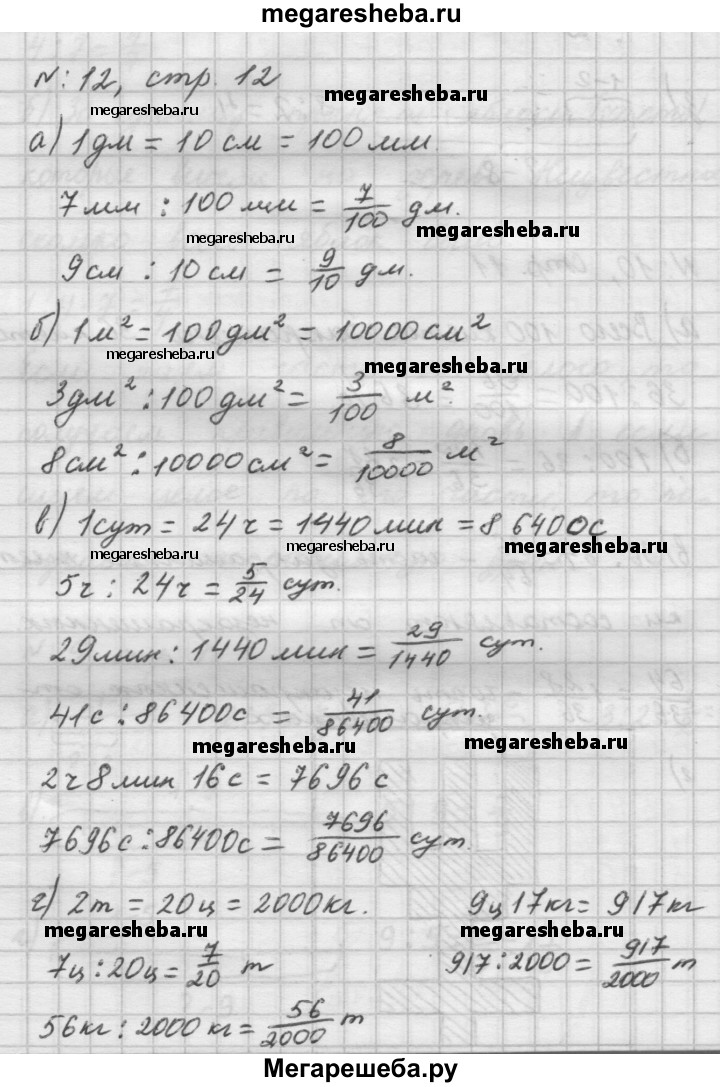 megaresheba.ru
№: 12, стр. 12
megaresheba.ru
megaresheba.ru
а) 1дм = 10 см = 100 мм.
7мм : 100 мм = 7/100 дм.
megaresheba.ru
megaresheba.ru
9см : 10 см = 9/10 дм.
б) 1м² = 100дм² = 10000 см²
megaresheba.ru
megaresheba.ru
3дм² : 100 дм² = 3/100 м².
8см² : 10000см² = 8/10000 м²
в) 1сут = 24ч = 1440 мин = 86400с
megaresheba.ru
megaresheba.ru
megaresheba.ru
5ч : 24ч = 5/24 сут.
29мин : 1440 мин = 29/1440 сут.
41с : 86400с = 41/86400 сут.
megaresheba.ru
megaresheba.ru
2ч 8мин 16с = 7696 с
7696с : 86400с = 7696/86400 сут.
г) 2т = 20ц = 2000кг. 9ц 17кг = 917кг
megaresheba.ru
megaresheba.ru
7ц : 20ц = 7/20 т 917 : 2000 = 917/2000 т
56кг : 2000 кг = 56/2000 т
Мегарешеба.ру